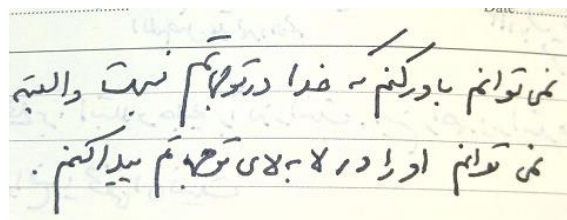 نمی توانم باور کنم که خدا در توهماتم نیست والبته
نمی توانم او را در لا به لای توهماتم پیدا کنم.